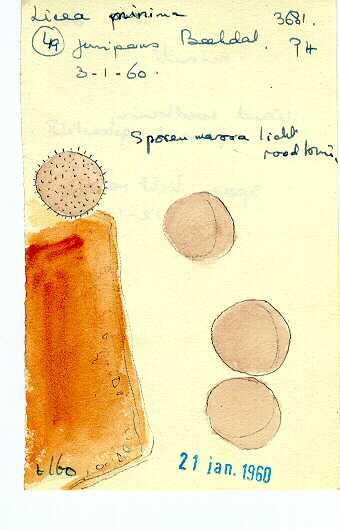 Licea minima 3681.
49 juniperus Beekdal. PH
3-1-60.
Sporenmassa licht
roodbruin.
L160
21 jan. 1960